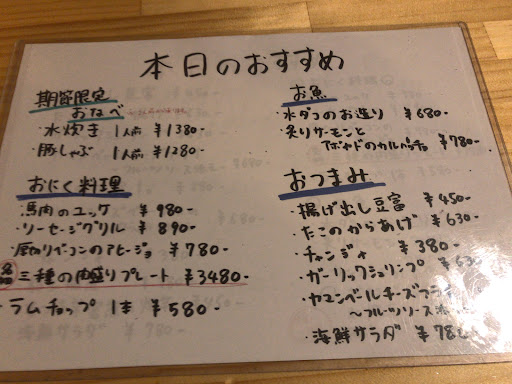 本日のおすすめ
期間限定
おなべ
・水炊き 1人前 ¥1380-
・豚しゃぶ 1人前 ¥1280-
おにく料理
・馬肉のユッケ ¥980-
・ソーセージグリル ¥890-
・厚切りベーコンのアヒージョ ¥780-
三種の肉盛りプレート ¥3480-
・ラムチョップ 1本 ¥580-
お魚
・水ダコのお造り ¥680-
・炙りサーモンと
アボカドのカルパッチョ ¥780-
おつまみ
・揚げ出し豆富 ¥450-
・たこのからあげ ¥630-
・チャンジャ ¥380-
・ガーリックシュリンプ ¥630
・カマンベールチーズフライ
〜フルーツソース
・海鮮サラダ ¥78